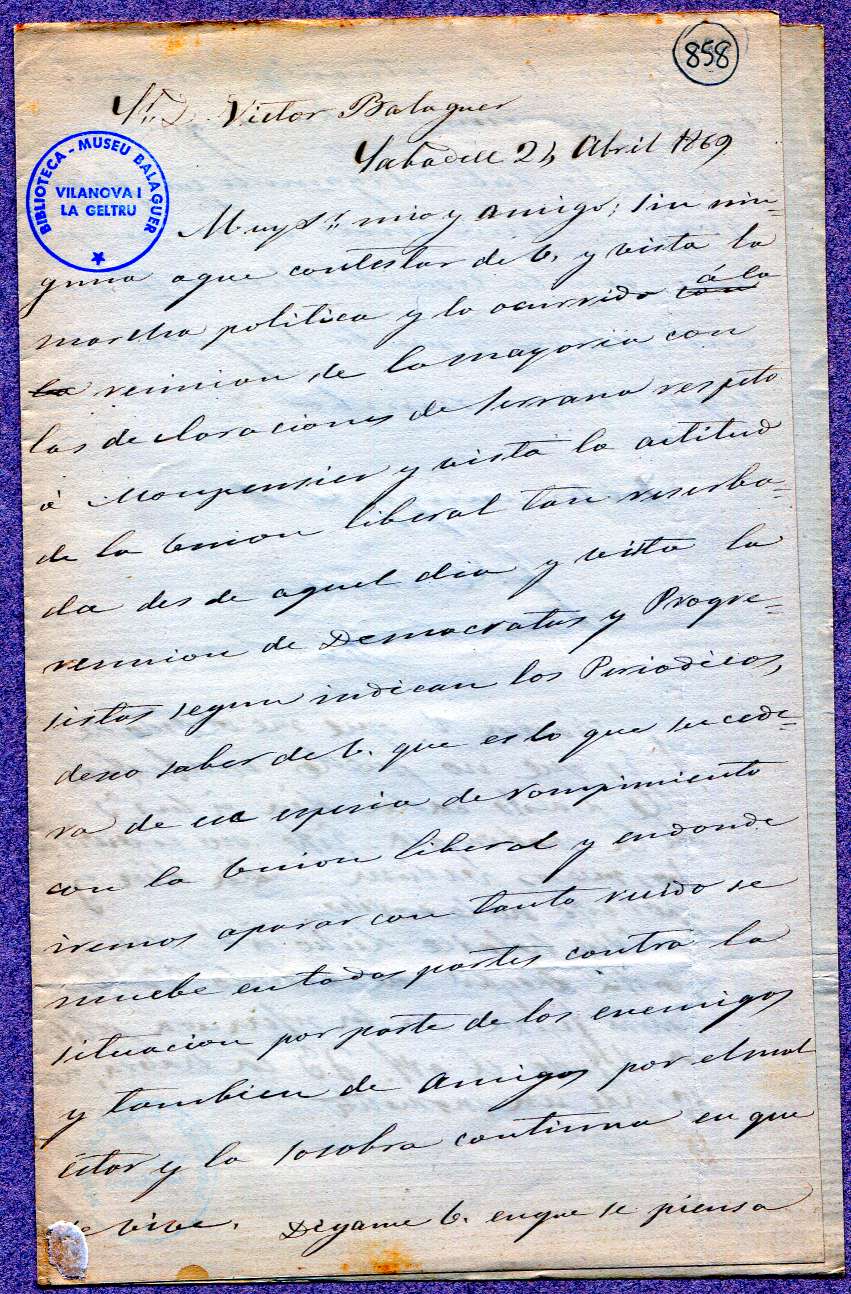 858
Sr. D. Victor Balaguer
Sabadell 24 Abril 1869
BIBLIOTECA - MUSEU BALAGUER
VILANOVA I
LA GELTRU
Muy Sr. mio y Amigo; Sin nin-
guna aque contestar de V. y vista la
marcha politica y lo ocurrido á la
reunion de la mayoria con
las declaraciones de Serrano respeto
á Monpensier y vista la actitud
de la Union liberal tan reserba-
da des de aquel dia y vista la
reunion de Democratas y Progre-
sistas segun indican los Periodicos,
deseo saber de V. que es lo que sucede-
ra de esa especia de rompimiento
con la Union liberal y endonde
iremos aparar con tanto ruido se
muebe en todas partes contra la
situacion por parte de los enemigos
y tambien de Amigos por el mal
estar y la sosobra continua en que
se vive. Digame V. enque se piensa